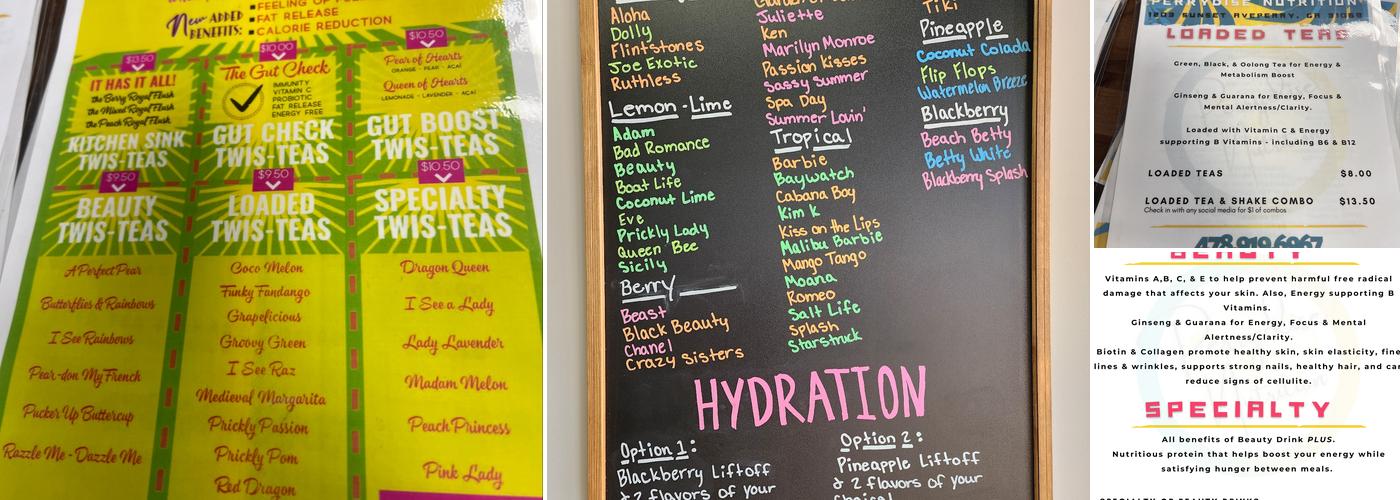 FEELING UP
FAT RELEASE
CALORIE REDUCTION
New ADDED
BENEFITS:
$13.50
IT HAS IT ALL!
the Berry Royal Flush
the Mixed Royal Flush
the Peach Royal Flush
KITCHEN SINK
TWIS-TEAS
$10.00
The Gut Check
IMMUNITY
VITAMIN C
PROBIOTIC
FAT RELEASE
ENERGY FREE
GUT CHECK
TWIS-TEAS
$10.50
Pear of Hearts
ORANGE - PEAR - ACAI
Queen of Hearts
LEMONADE - LAVENDER - ACAI
GUT BOOST
TWIS-TEAS
$9.50
BEAUTY
TWIS-TEAS
A Perfect Pear
Butterflies & Rainbows
I See Rainbows
Pear-don My French
Pucker Up Buttercup
Razzle Me - Dazzle Me
$9.50
LOADED
TWIS-TEAS
Coco Melon
Funky Fandango
Grapelicious
Groovy Green
I See Raz
Medieval Margarita
Prickly Passion
Prickly Pom
Red Dragon
$10.50
SPECIALTY
TWIS-TEAS
Dragon Queen
I See a Lady
Lady Lavender
Madam Melon
Peach Princess
Pink Lady
Aloha
Dolly
Flintstones
Joe Exotic
Ruthless
Lemon-Lime
Adam
Bad Romance
Beauty
Boat Life
Coconut Lime
Eve
Prickly Lady
Queen Bee
Sicily
Berry
Beast
Black Beauty
Chanel
Crazy Sisters
Juliette
Ken
Marilyn Monroe
Passion Kisses
Sassy Summer
Spa Day
Summer Lovin'
Tropical
Barbie
Baywatch
Cabana Boy
Kim K
Kiss on the Lips
Malibu Barbie
Mango Tango
Moana
Romeo
Salt Life
Splash
Starstruck
Tiki
Pineapple
Coconut Colada
Flip Flops
Watermelon Breeze
Blackberry
Beach Betty
Betty White
Blackberry Splash
HYDRATION
Option 1:
Blackberry Liftoff
& 2 flavors of your
Option 2:
Pineapple Liftoff
& 2 flavors of your
PERRYDISE NUTRITION
1203 SUNSET AVEPERRY, GA 31069
LOADED TEAS
Green, Black, & Oolong Tea for Energy &
Metabolism Boost
Ginseng & Guarana for Energy, Focus &
Mental Alertness/Clarity.
Loaded with Vitamin C & Energy
supporting B Vitamins - including B6 & B12
LOADED TEAS $8.00
LOADED TEA & SHAKE COMBO $13.50
Check in with any social media for $1 of combos
478.919.6967
BEAUTY
Vitamins A,B, C, & E to help prevent harmful free radical
damage that affects your skin. Also, Energy supporting B
Vitamins.
Ginseng & Guarana for Energy, Focus & Mental
Alertness/Clarity.
Biotin & Collagen promote healthy skin, skin elasticity, fine
lines & wrinkles, supports strong nails, healthy hair, and can
reduce signs of cellulite.
SPECIALTY
All benefits of Beauty Drink PLUS.
Nutritious protein that helps boost your energy while
satisfying hunger between meals.